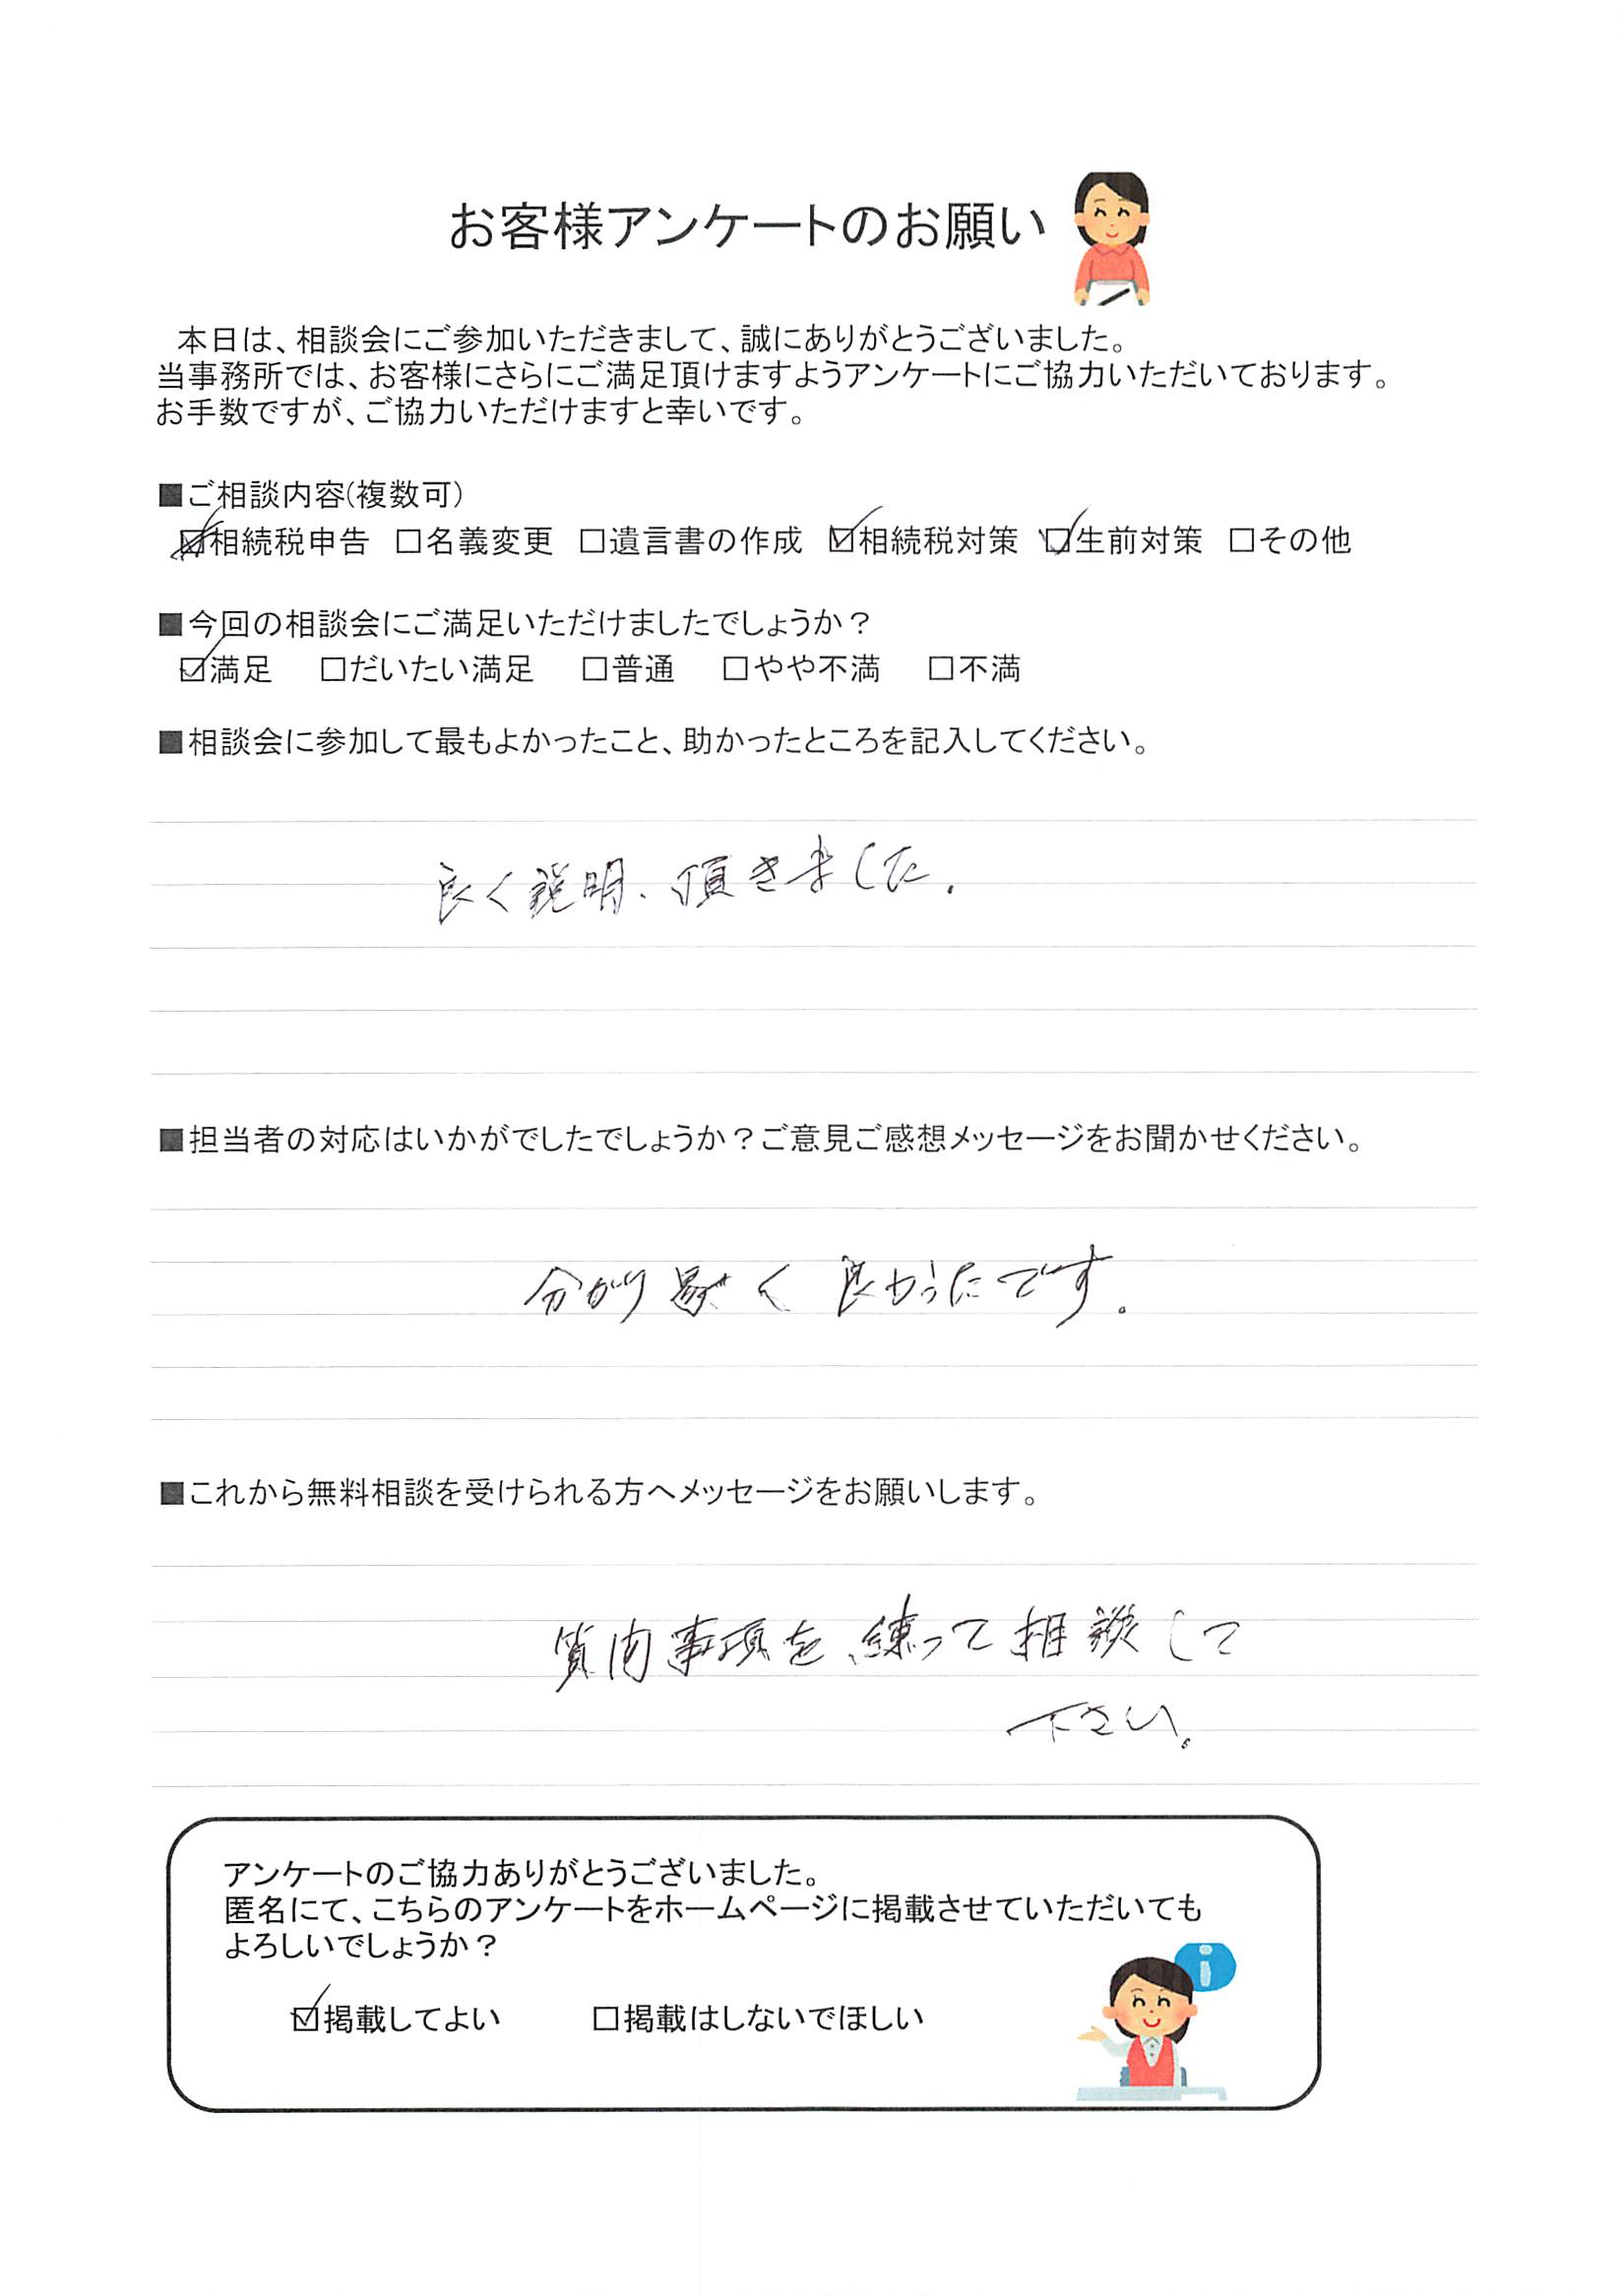 お客様アンケートのお願い
本日は、相談会にご参加いただきまして、誠にありがとうございました。
当事務所では、お客様にさらにご満足頂けますようアンケートにご協力いただいております。
お手数ですが、ご協力いただけますと幸いです。
■ご相談内容(複数可)
☑相続税申告 □名義変更 □遺言書の作成 ☑相続税対策 ☑生前対策 □その他
■今回の相談会にご満足いただけましたでしょうか？
☑満足 □だいたい満足 □普通 □やや不満 □不満
■相談会に参加して最もよかったこと、助かったところを記入してください。
良く説明、頂きました.
■担当者の対応はいかがでしたでしょうか？ご意見ご感想メッセージをお聞かせください。
分かり易く 良かったです.
■これから無料相談を受けられる方へメッセージをお願いします。
質問事項を、練って相談して
下さい。
アンケートのご協力ありがとうございました。
匿名にて、こちらのアンケートをホームページに掲載させていただいても
よろしいでしょうか？
☑掲載してよい □掲載はしないでほしい